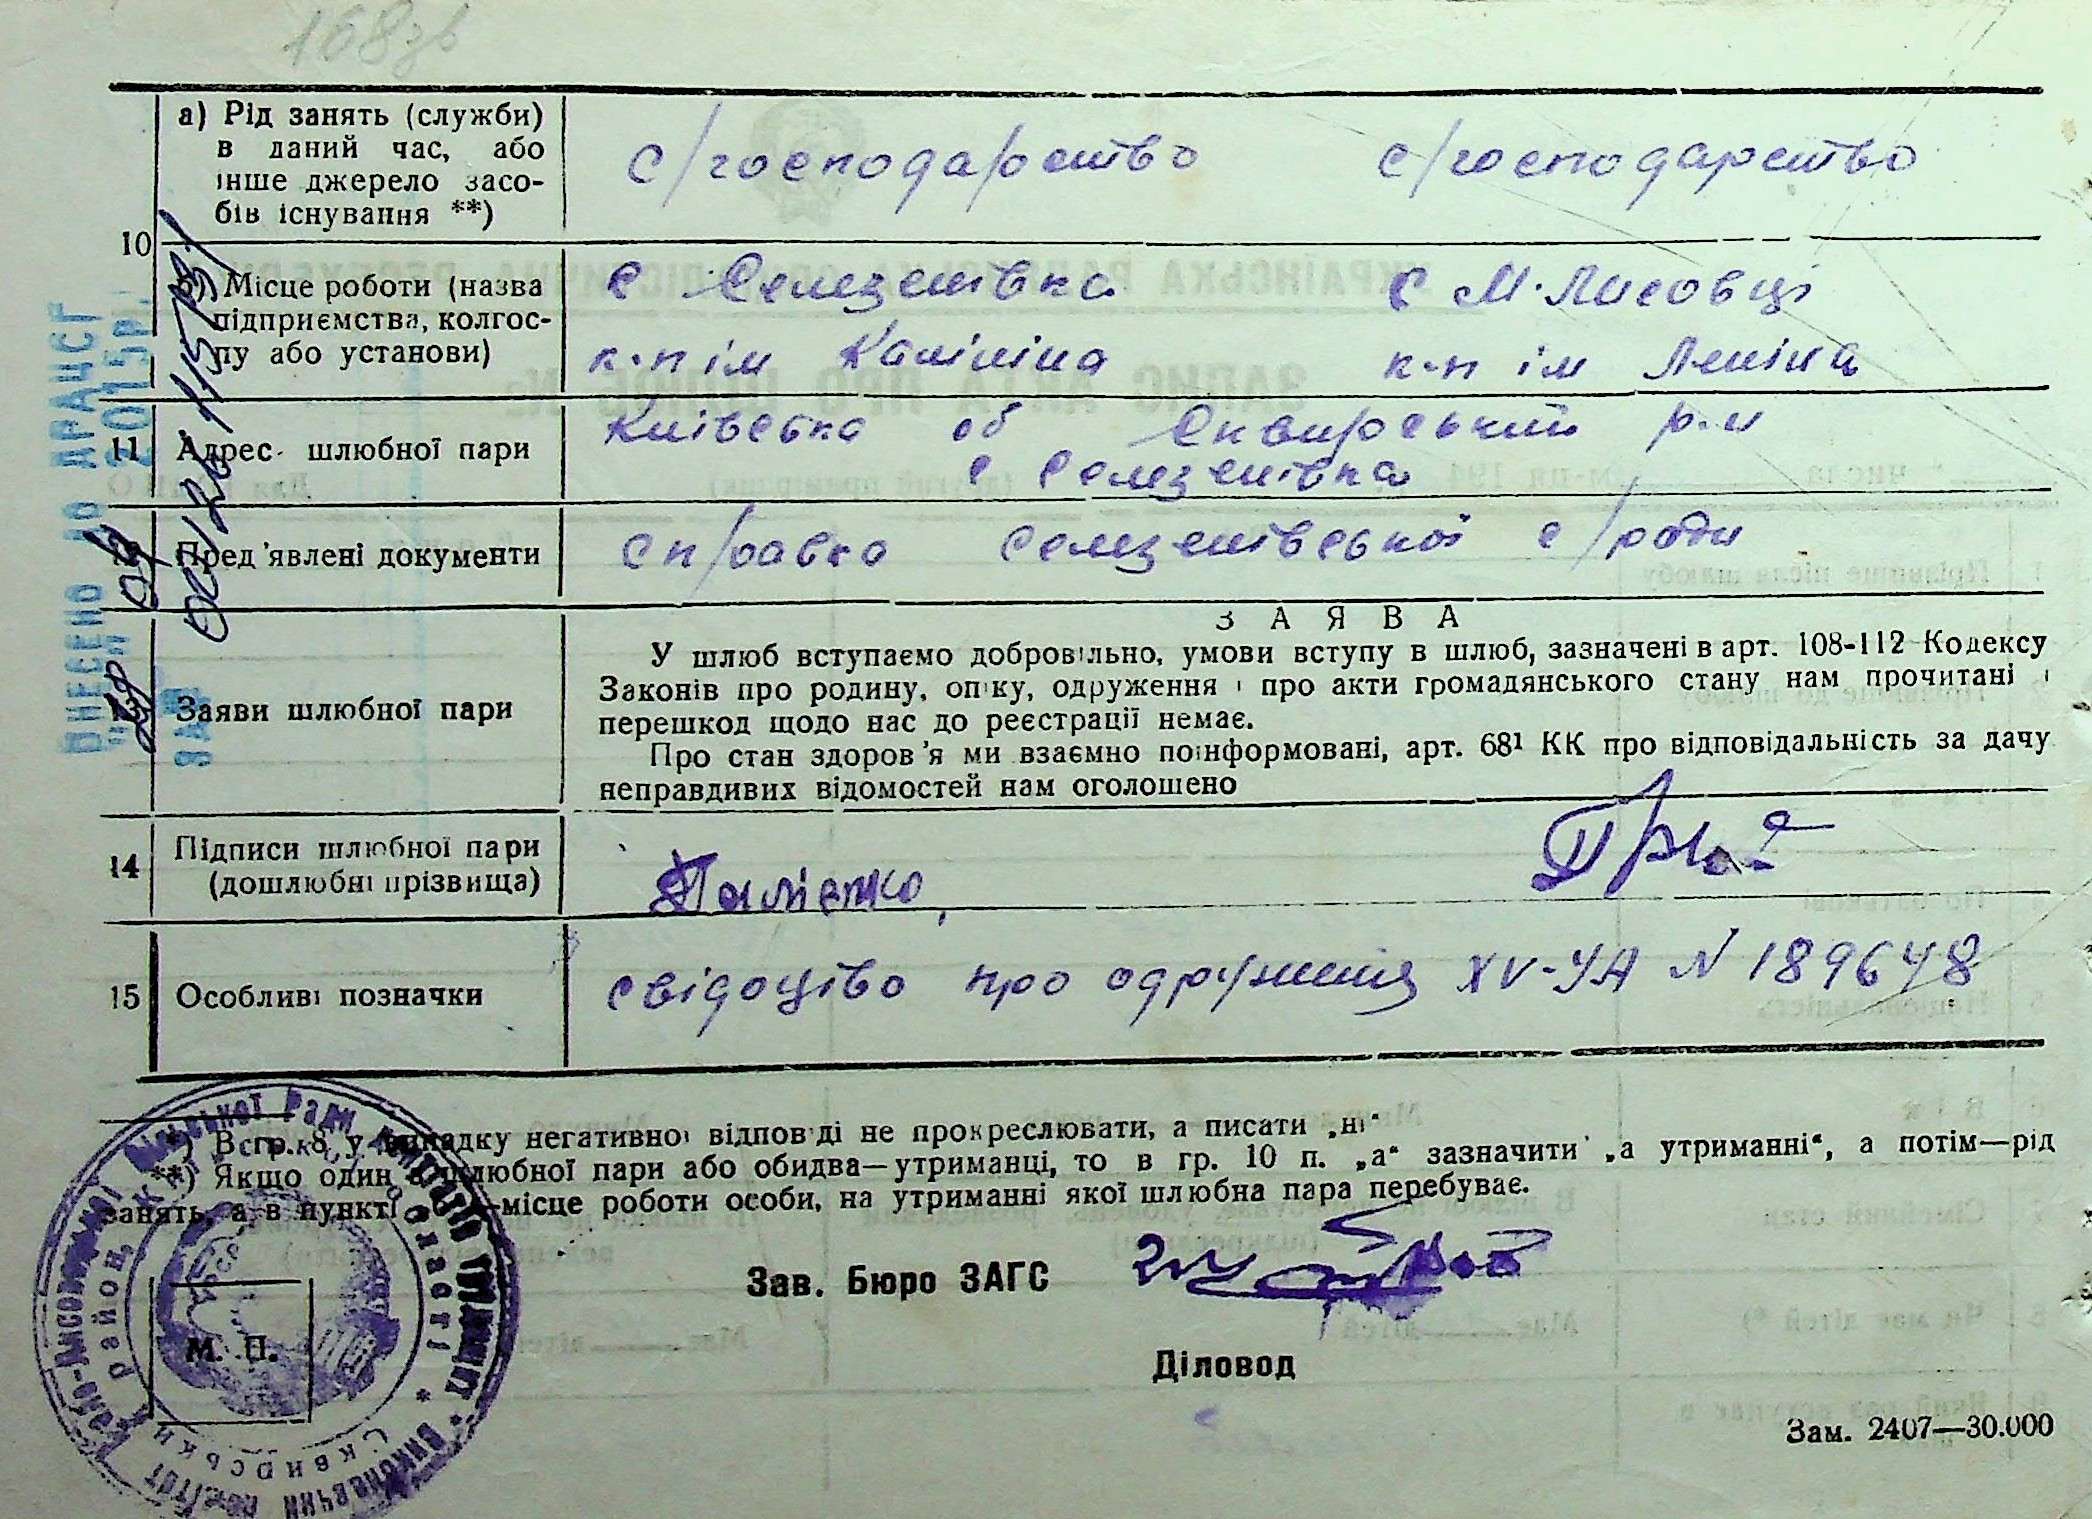 168зв
а) Рід занять (служби)
в даний час, або
інше джерело засо-
бів існування **)
с/господарство с/господарство
10
б) Місце роботи (назва
підприємства, колгос-
пу або установи)
с Селезенівка с М.Лисовці
к-п ім Калініна к-п ім Леніна
11 Адрес шлюбної пари
Київська об Сквирський р-н
с Селезенівка
12 Пред'явлені документи
справка Селезенівської с/ради
13 Заяви шлюбної пари
ЗАЯВА
У шлюб вступаємо добровільно, умови вступу в шлюб, зазначені в арт. 108-112 Кодексу
Законів про родину, опіку, одруження і про акти громадянського стану нам прочитані і
перешкод щодо нас до реєстрації немає.
Про стан здоров'я ми взаємно поінформовані, арт. 68¹ КК про відповідальність за дачу
неправдивих відомостей нам оголошено
14 Підписи шлюбної пари
(дошлюбні прізвища)
15 Особливі позначки
свідоцтво про одруження XV-УА N 189648
*) В стр. 8 у випадку негативної відповіді не прокреслювати, а писати „ні“
**) Якщо один з шлюбної пари або обидва—утриманці, то в гр. 10 п. „а“ зазначити „а утриманні“, а потім—рід
занять, а в пункті —місце роботи особи, на утриманні якої шлюбна пара перебуває.
Зав. Бюро ЗАГС
М. П.
Діловод
Зам. 2407—30.000
ВНЕСЕНО ДО ДРАЦСГ
2015р.
ЗА №